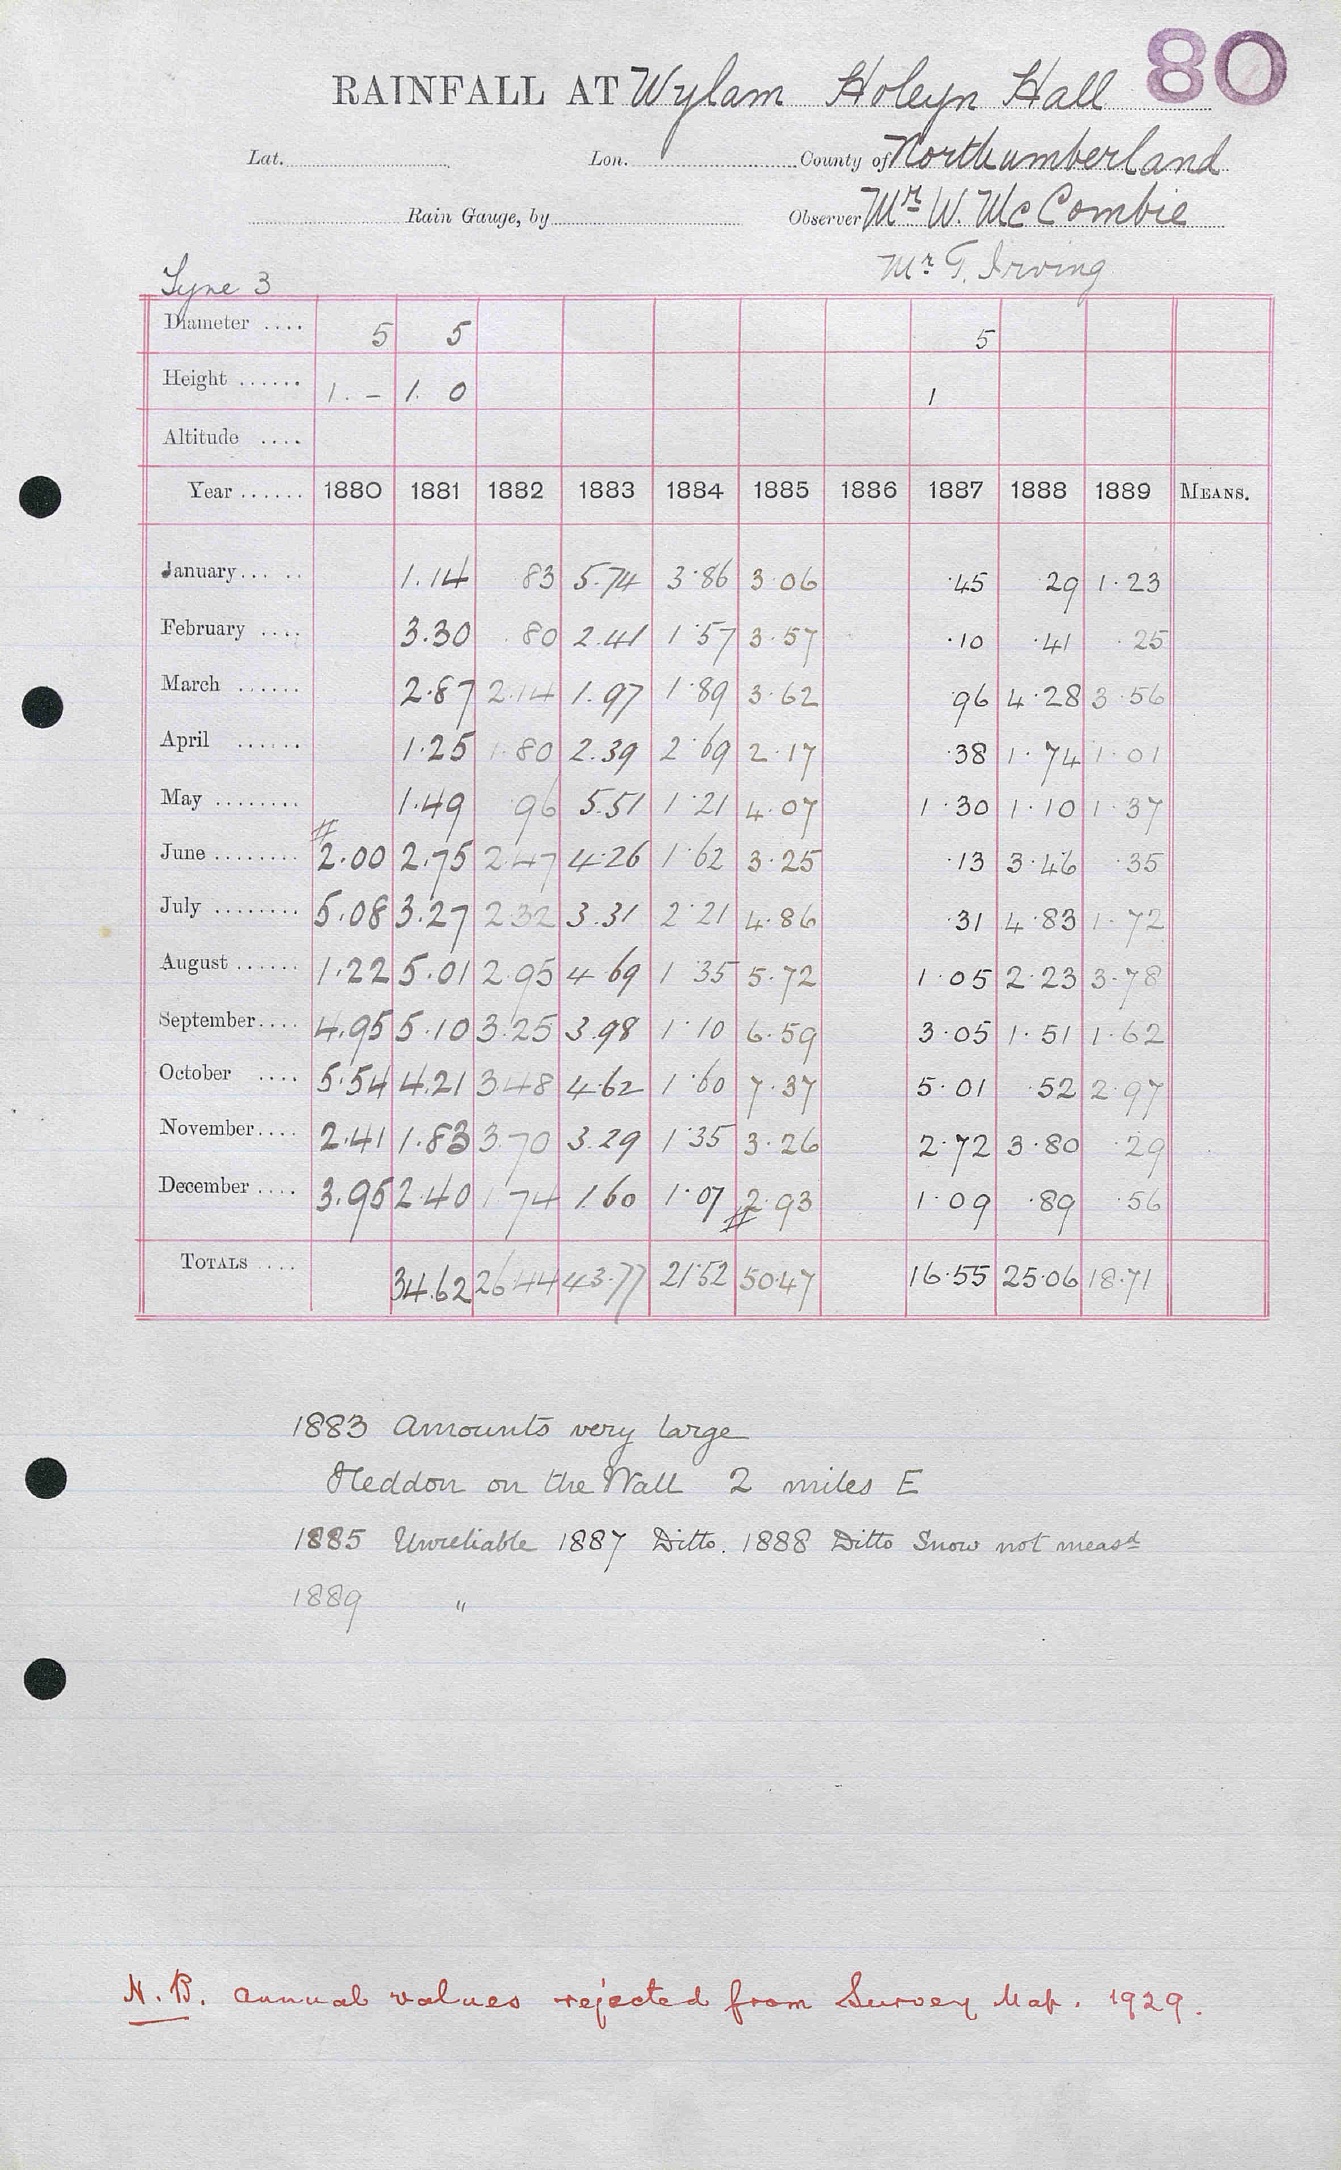 80
RAINFALL AT Wylam Holeyn Hall
Lat. Lon. County of Northumberland
Rain Gauge, by Observer Mr W. McCombie
Mr T. Irving
Tyne 3
Diameter .... 5 5 5
Height ...... 1. – 1. 0 1
Altitude ....
Year ...... 1880 1881 1882 1883 1884 1885 1886 1887 1888 1889 MEANS.
January... .. 1.14 83 5.74 3.86 3.06 .45 .29 1.23
February .... 3.30 .80 2.41 1.57 3.57 .10 .41 .25
March ...... 2.87 2.14 1.97 1.89 3.62 .96 4.28 3.56
April ...... 1.25 1.80 2.39 2.69 2.17 .38 1.74 1.01
May ........ 1.49 96 5.51 1.21 4.07 1.30 1.10 1.37
June ........ # 2.00 2.75 2.47 4.26 1.62 3.25 .13 3.46 .35
July ........ 5.08 3.27 2.32 3.31 2.21 4.86 .31 4.83 1.72
August ...... 1.22 5.01 2.95 4.69 1.35 5.72 1.05 2.23 3.78
September.... 4.95 5.10 3.25 3.98 1.10 6.59 3.05 1.51 1.62
October .... 5.54 4.21 3.48 4.62 1.60 7.37 5.01 .52 2.97
November.... 2.41 1.83 3.70 3.29 1.35 3.26 2.72 3.80 .29
December .... 3.95 2.40 1.74 1.60 1.07 # 2.93 1.09 .89 .56
TOTALS .... 34.62 26.44 43.77 21.52 50.47 16.55 25.06 18.71
1883 Amounts very large
Heddon on the Wall 2 miles E
1885 Unreliable 1887 Ditto. 1888 Ditto Snow not measd
1889 "
N.B. annual values rejected from Survey Map. 1929.